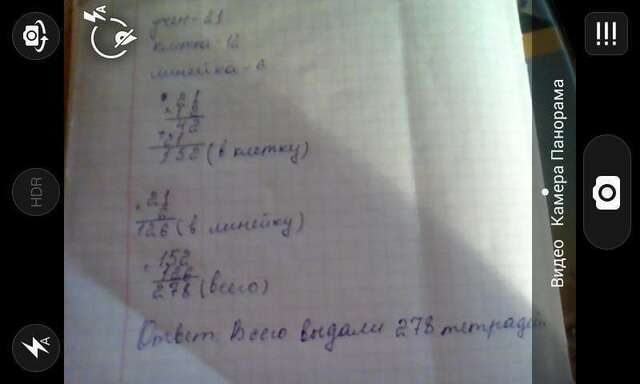 учен-21
клетка-12
линейка-6
× 21
12
42
+ 21
152 (в клетку)
× 21
6
126 (в линейку)
+ 152
126
278 (всего)
Ответ: Всего выдали 278 тетрадей.
HDR
Видео Камера Панорама